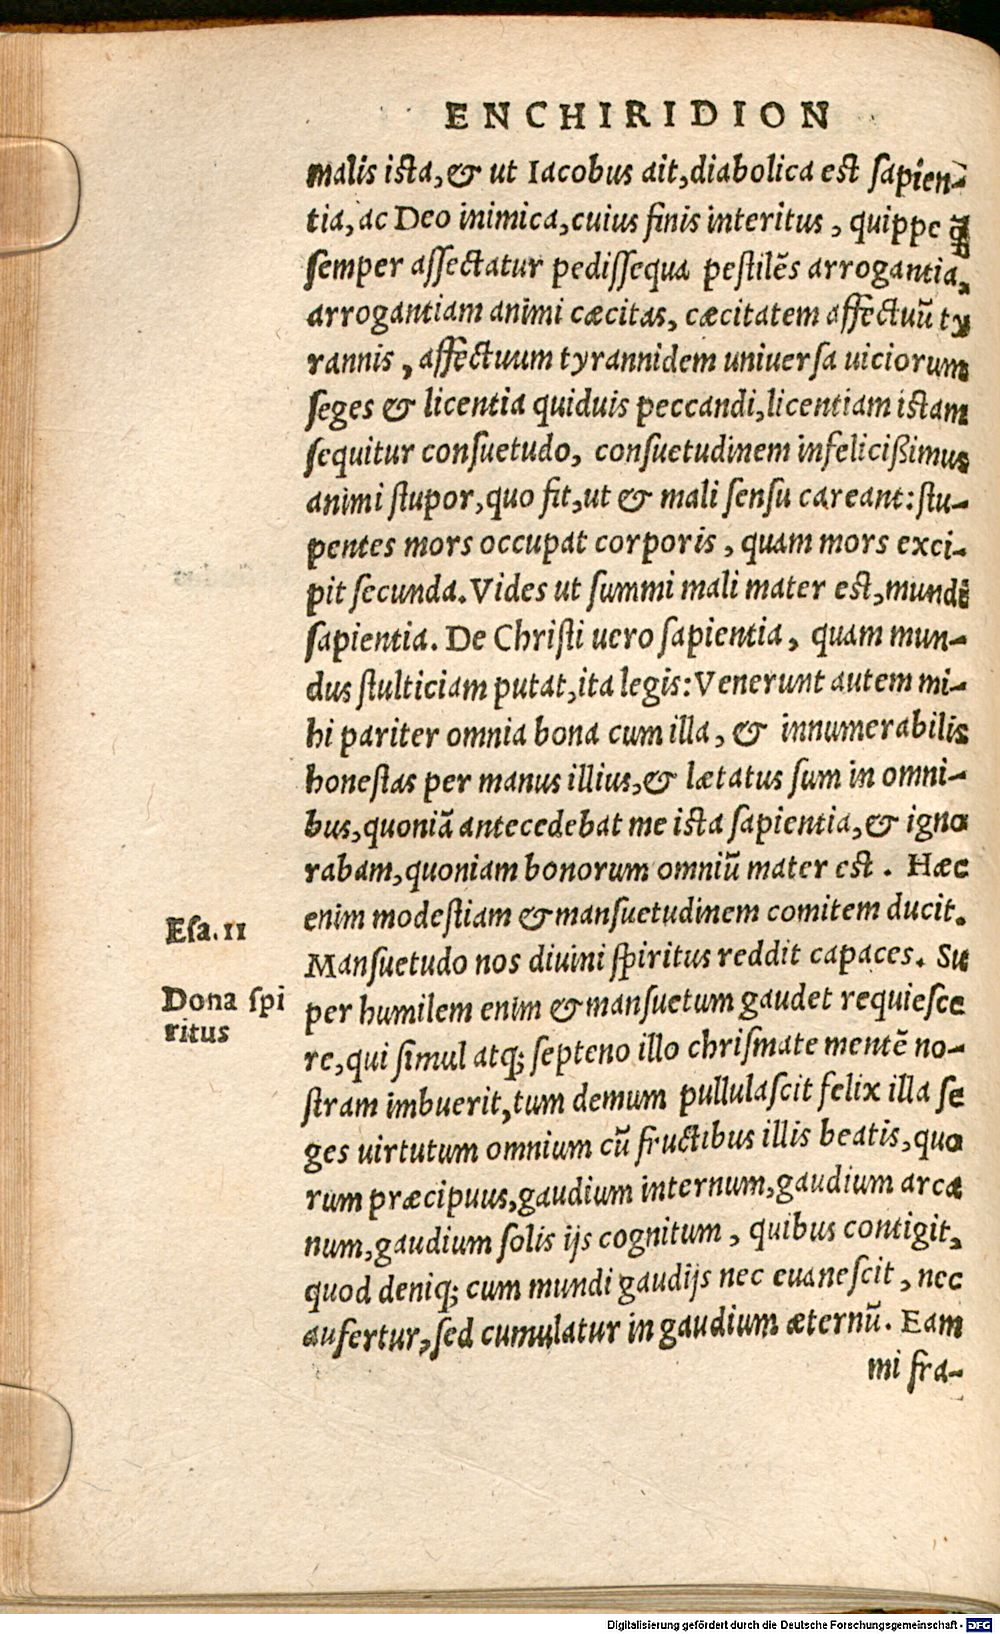 ENCHIRIDION
malis ista, & ut Iacobus ait, diabolica est sapien-
tia, ac Deo inimica, cuius finis interitus, quippe quã
semper assectatur pedissequa pestilẽs arrogantia,
arrogantiam animi cæcitas, cæcitatem affectuũ ty
rannis, affectuum tyrannidem uniuersa uiciorum
seges & licentia quiduis peccandi, licentiam istam
sequitur consuetudo, consuetudinem infelicißimus
animi stupor, quo fit, ut & mali sensu careant: stu-
pentes mors occupat corporis, quam mors exci-
pit secunda. Vides ut summi mali mater est, mundi
sapientia. De Christi uero sapientia, quam mun-
dus stulticiam putat, ita legis: Venerunt autem mi-
hi pariter omnia bona cum illa, & innumerabilis
honestas per manus illius, & lætatus sum in omni-
bus, quoniã antecedebat me ista sapientia, & igno
rabam, quoniam bonorum omniũ mater est. Hæc
enim modestiam & mansuetudinem comitem ducit.
Esa. 11
Mansuetudo nos diuini spiritus reddit capaces. Su
Dona spi
ritus
per humilem enim & mansuetum gaudet requiesce
re, qui simul atq; septeno illo chrismate mentẽ no-
stram imbuerit, tum demum pullulascit felix illa se
ges uirtutum omnium cũ fructibus illis beatis, quo
rum præcipuus, gaudium internum, gaudium arca
num, gaudium solis ijs cognitum, quibus contigit,
quod deniq; cum mundi gaudijs nec euanescit, nec
aufertur, sed cumulatur in gaudium æternũ. Eam
mi fra-
Digitalisierung gefördert durch die Deutsche Forschungsgemeinschaft - DFG